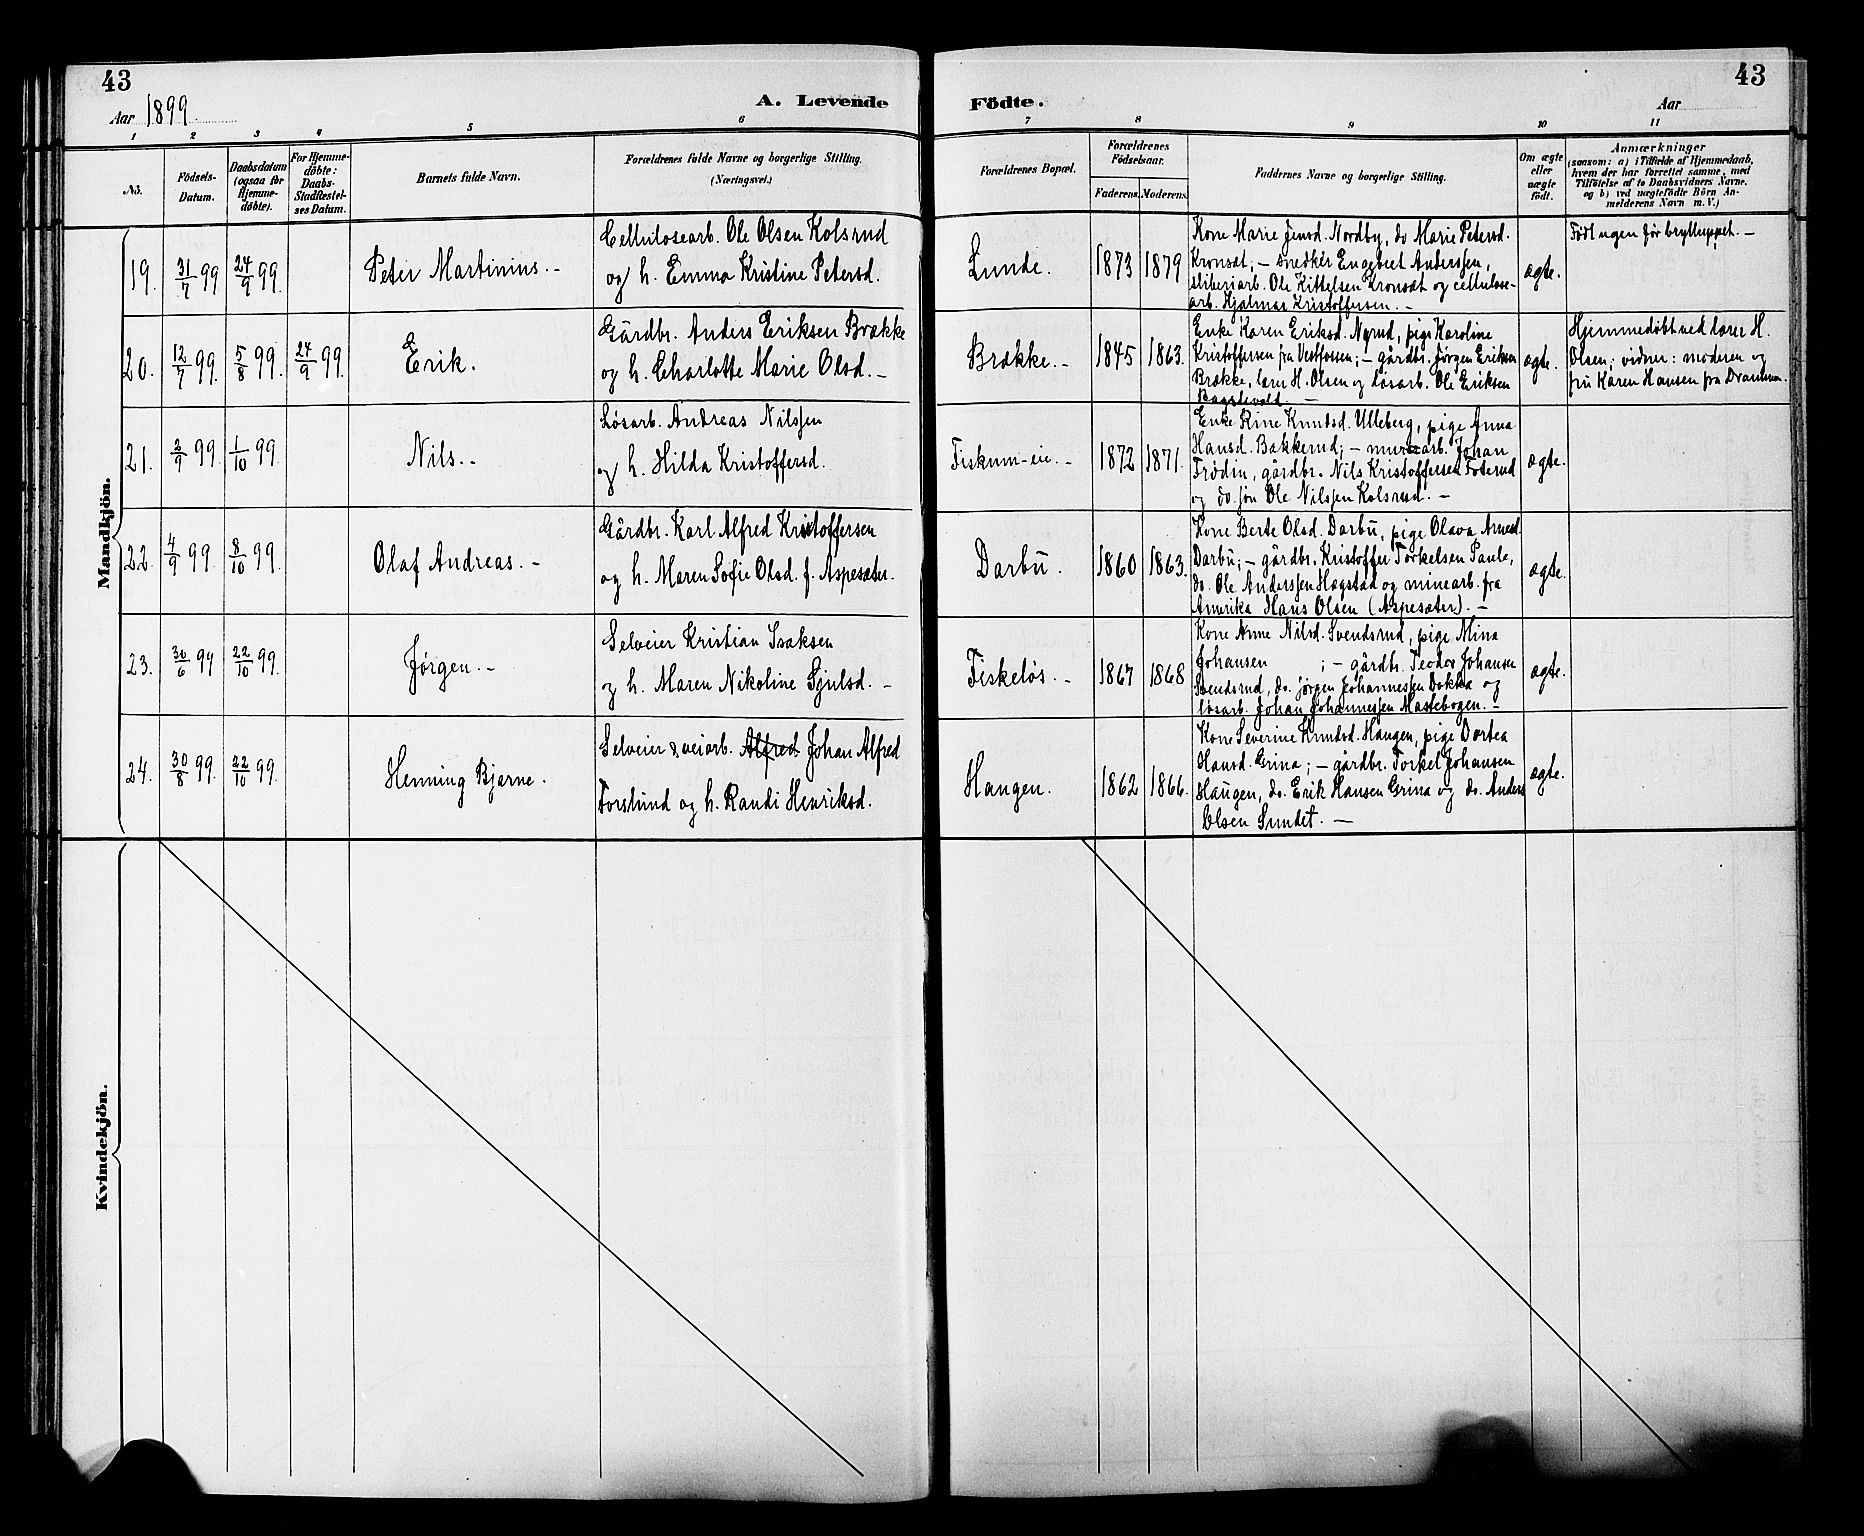 43
43
Aar 1899
A. Levende
Födte.
Aar
1 2 3 4 5 6 7 8 9 10 11
No.
Födsels-
Datum.
Daabsdatum
(ogsaa for
Hjemme-
döbte).
For Hjemme-
döbte:
Daabs-
Stadfæstel-
ses Datum.
Barnets fulde Navn.
Forældrenes fulde Navne og borgerlige Stilling.
(Næringsvei.)
Forældrenes Bopæl.
Forældrenes
Födselsaar.
Faderens. Moderens.
Faddernes Navne og borgerlige Stilling.
Om ægte
eller
uægte
födt.
Anmærkninger
(saasom: a) i Tilfælde af Hjemmedaab,
hvem der har forrettet samme, med
Tilföielse af to Daabsvidners Navne.
og b) ved uægtefödte Börn An-
melderens Navn m. V.)
Mandkjön.
19. 31/7 99 24/9 99. Peter Martinius. -
Cellulosearb. Ole Olsen Kolsrud
og h. Emma Kristine Petersd.
Lunde. 1873 1879
Kone Marie Jensd. Nordby, do Marie Petersd.
Kronsæt; - snedker Engebret Anderssen,
sliberiarb. Ole Kittelsen Kronsæt og cellulose-
arb. Hjalmar Kristoffersen. -
ægte.
Født ugen før brylluppet. -
20. 12/7 99. 5/8 99. 24/9 99. Erik.
Gårdbr. Anders Eriksen Brække
og h. Charlotte Marie Olsd. -
Brække. - 1845 1863.
Enke Karen Eriksd. Nyrud, pige Karoline
Kristoffersen fra Vestfossen; - gårdbr. Jørgen Eriksen
Brække, lærer H. Olsen og løsarb. Ole Eriksen
Bagstevold. -
ægte.
Hjemmedøbt ved lærer H.
Olsen; vidner: moderen og
fru Karen Hansen fra Drammen.
21. 2/9 99. 1/10 99. Nils. -
Løsarb. Andreas Nilssen
og h. Hilda Kristoffersd.
Fiskum-eie. - 1872 1871.
Enke Rine Knudsd. Ulleberg, pige Anna
Hansd. Bakkerud; - murarb. Johan
Frødin, gårdbr. Nils Kristoffersen Foterud
og do. søn Ole Nilssen Kolsrud. -
ægte.
22. 4/9 99. 8/10 99. Olaf Andreas. -
Gårdbr. Karl Alfred Kristoffersen
og h. Maren Sofie Olsd. f. Aspesæter.
Darbu. 1860 1863.
Kone Berte Olsd. Darbu, pige Olava Arnesd.
Darbu; - gårdbr. Kristoffer Torkelsen Saule,
do. Ole Anderssen Hægstad og minearb. fra
Amerika Hans Olsen (Aspesæter). -
ægte.
23. 30/6 94 22/10 99. Jørgen. -
Selveier Kristian Isaksen
og h. Maren Nikoline Gjulsd. -
Fiskeløs. - 1867 1868
Kone Anne Nilsd. Svendsrud, pige Mina
Johansen ; - gårdbr. Teodor Johansen
Svendsrud, do. Jørgen Johannessen Dokka og
løsarb. Johan Johannessen Mastebogen. -
ægte.
24. 30/8 99. 22/10 99. Henning Bjarne.
Selveier & veiarb. Alfred Johan Alfred
Forslund og h. Randi Henriksd.
Haugen. 1862 1866.
Kone Severine Knudsd. Haugen, pige Dortea
Hansd. Grina; - gårdbr. Torkel Johansen
Haugen, do. Erik Hansen Grina og do. Anders
Olsen Sundet. -
ægte.
Kvindekjön.